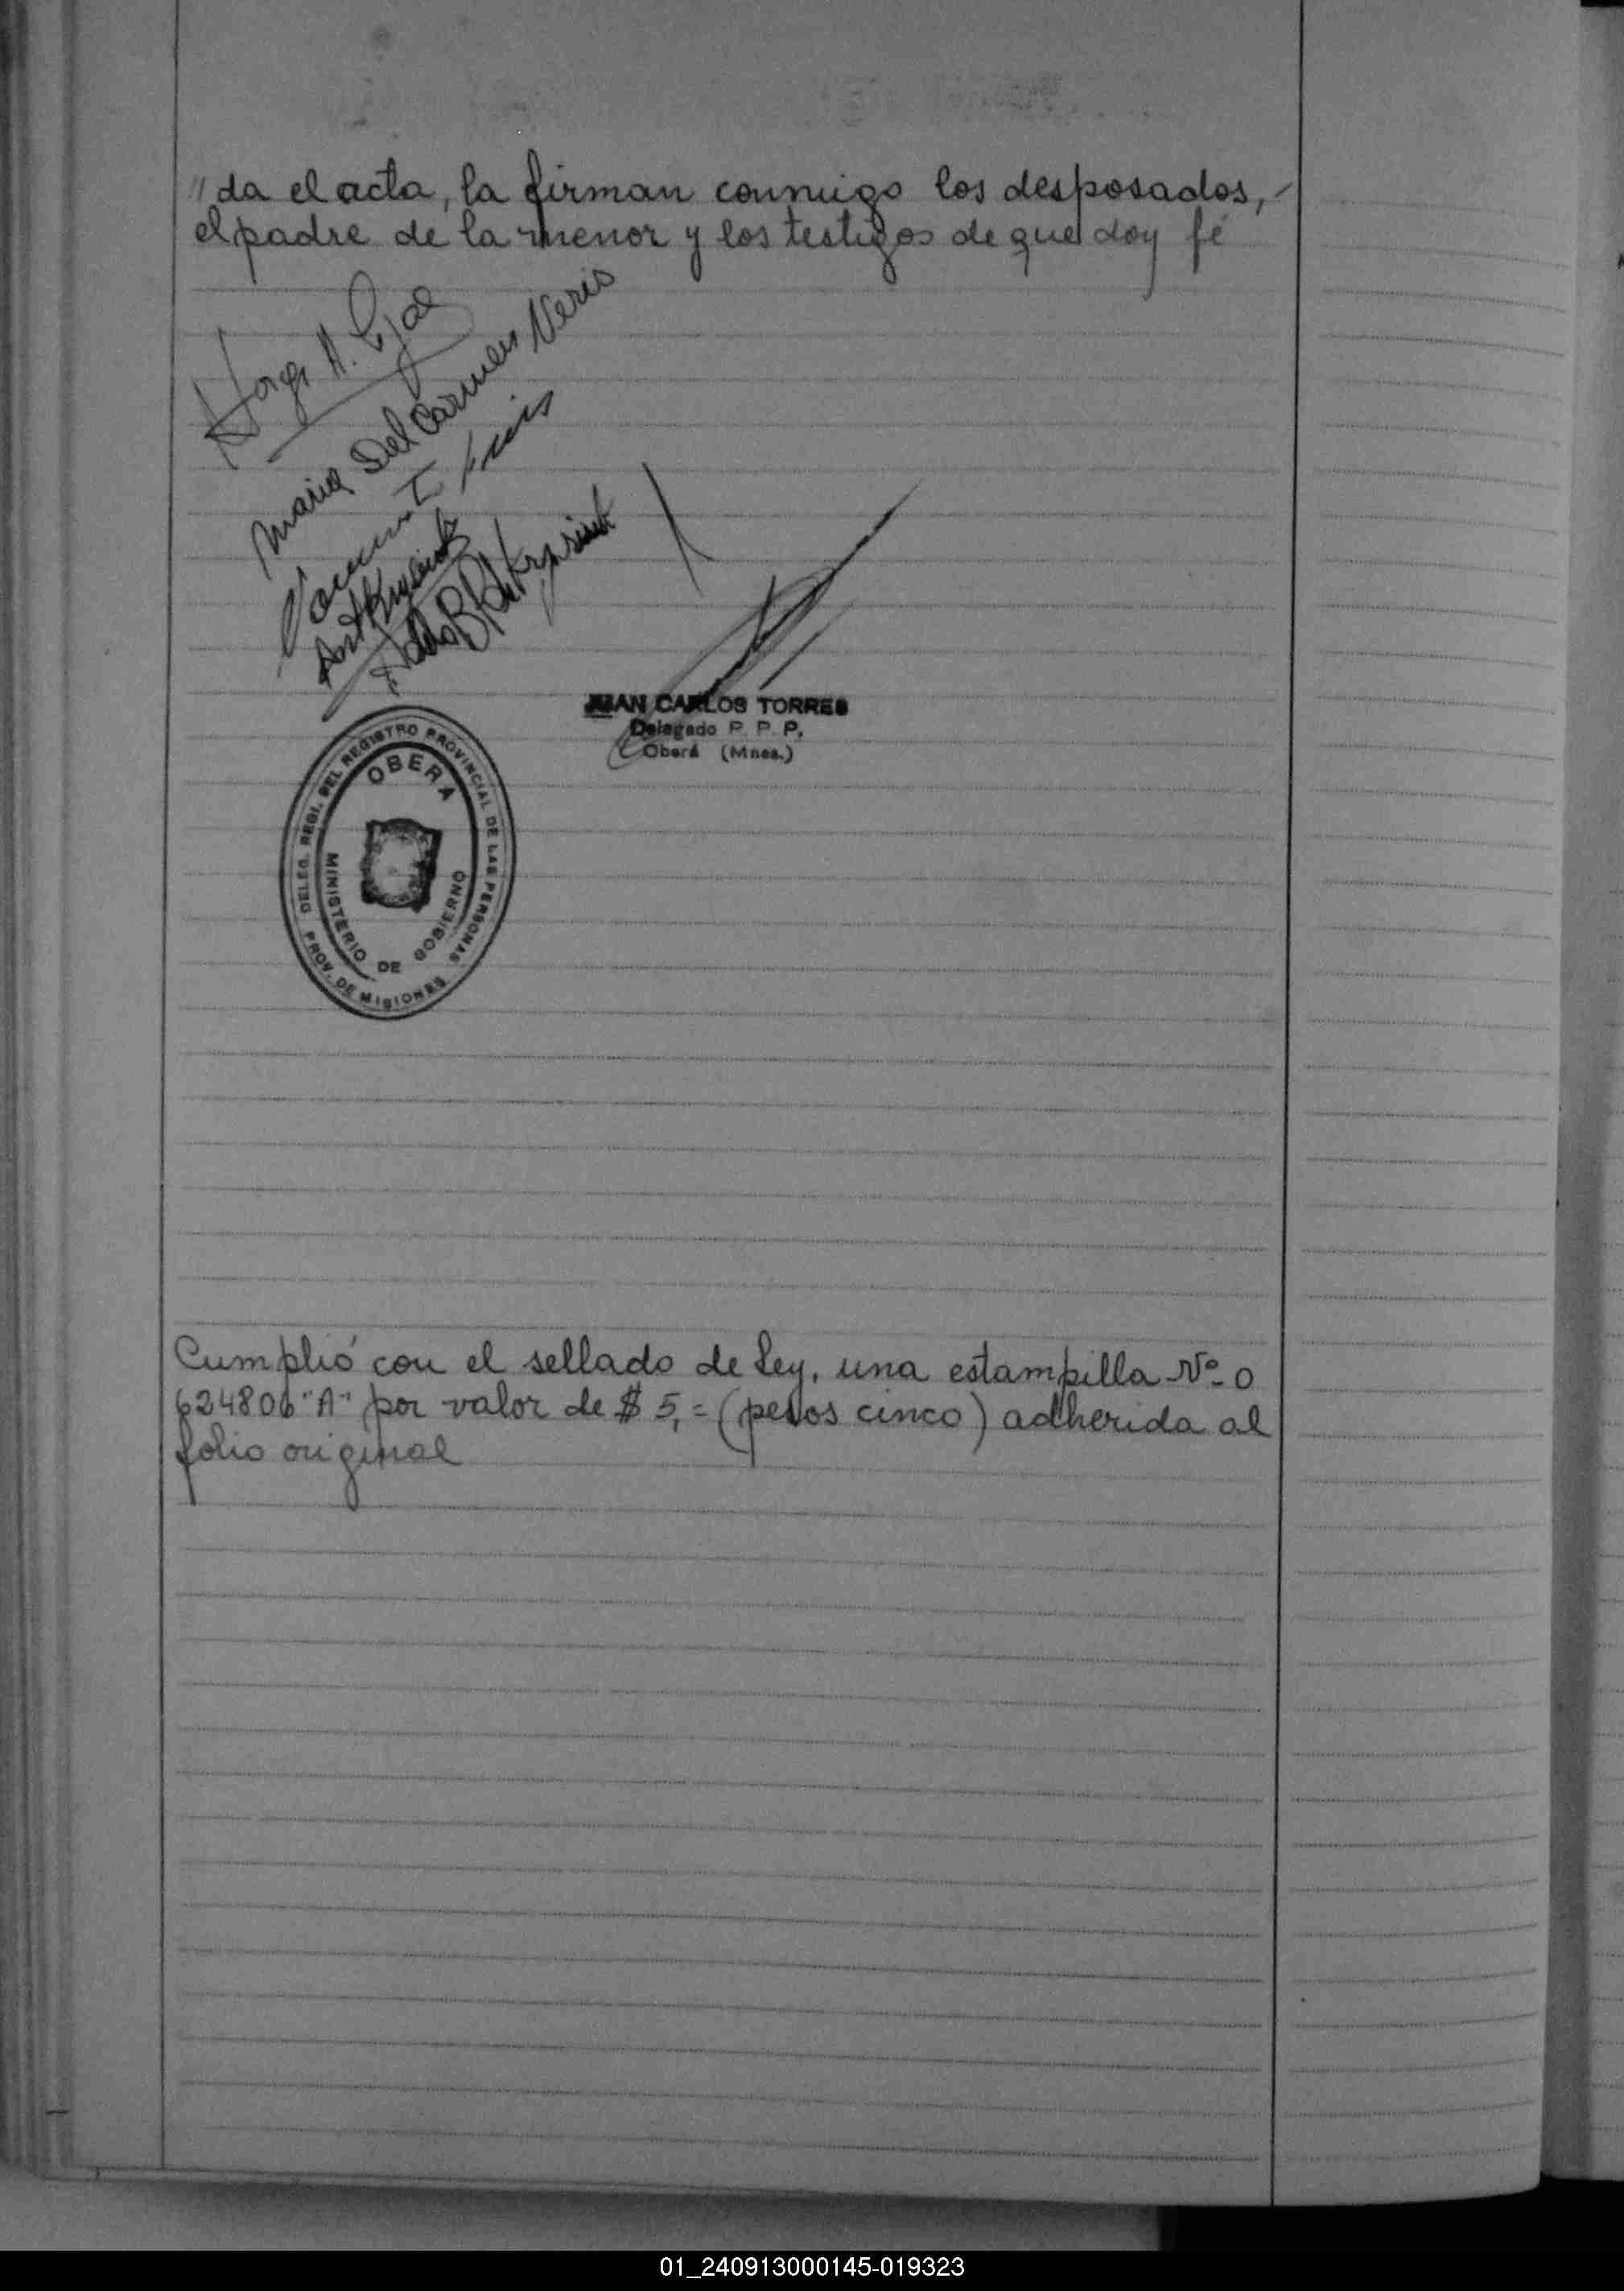 "da el acta, la firman conmigo los desposados,-
el padre de la menor y los testigos de que doy fé
Jorge A.
Maria Del Carmen Neris
JUAN CARLOS TORRES
Delegado P. P. P.
Oberá (Mnes.)
DELEG. REGI. DEL REGISTRO PROVINCIAL DE LAS PERSONAS
OBERA
MINISTERIO DE GOBIERNO
PROV. DE MISIONES
Cumplió con el sellado de Ley, una estampilla Nº 0
624806 "A" por valor de $ 5,= (pesos cinco) adherida al
folio original
01_240913000145-019323